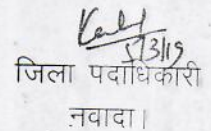 5/3/19
जिला पदाधिकारी
नवादा।